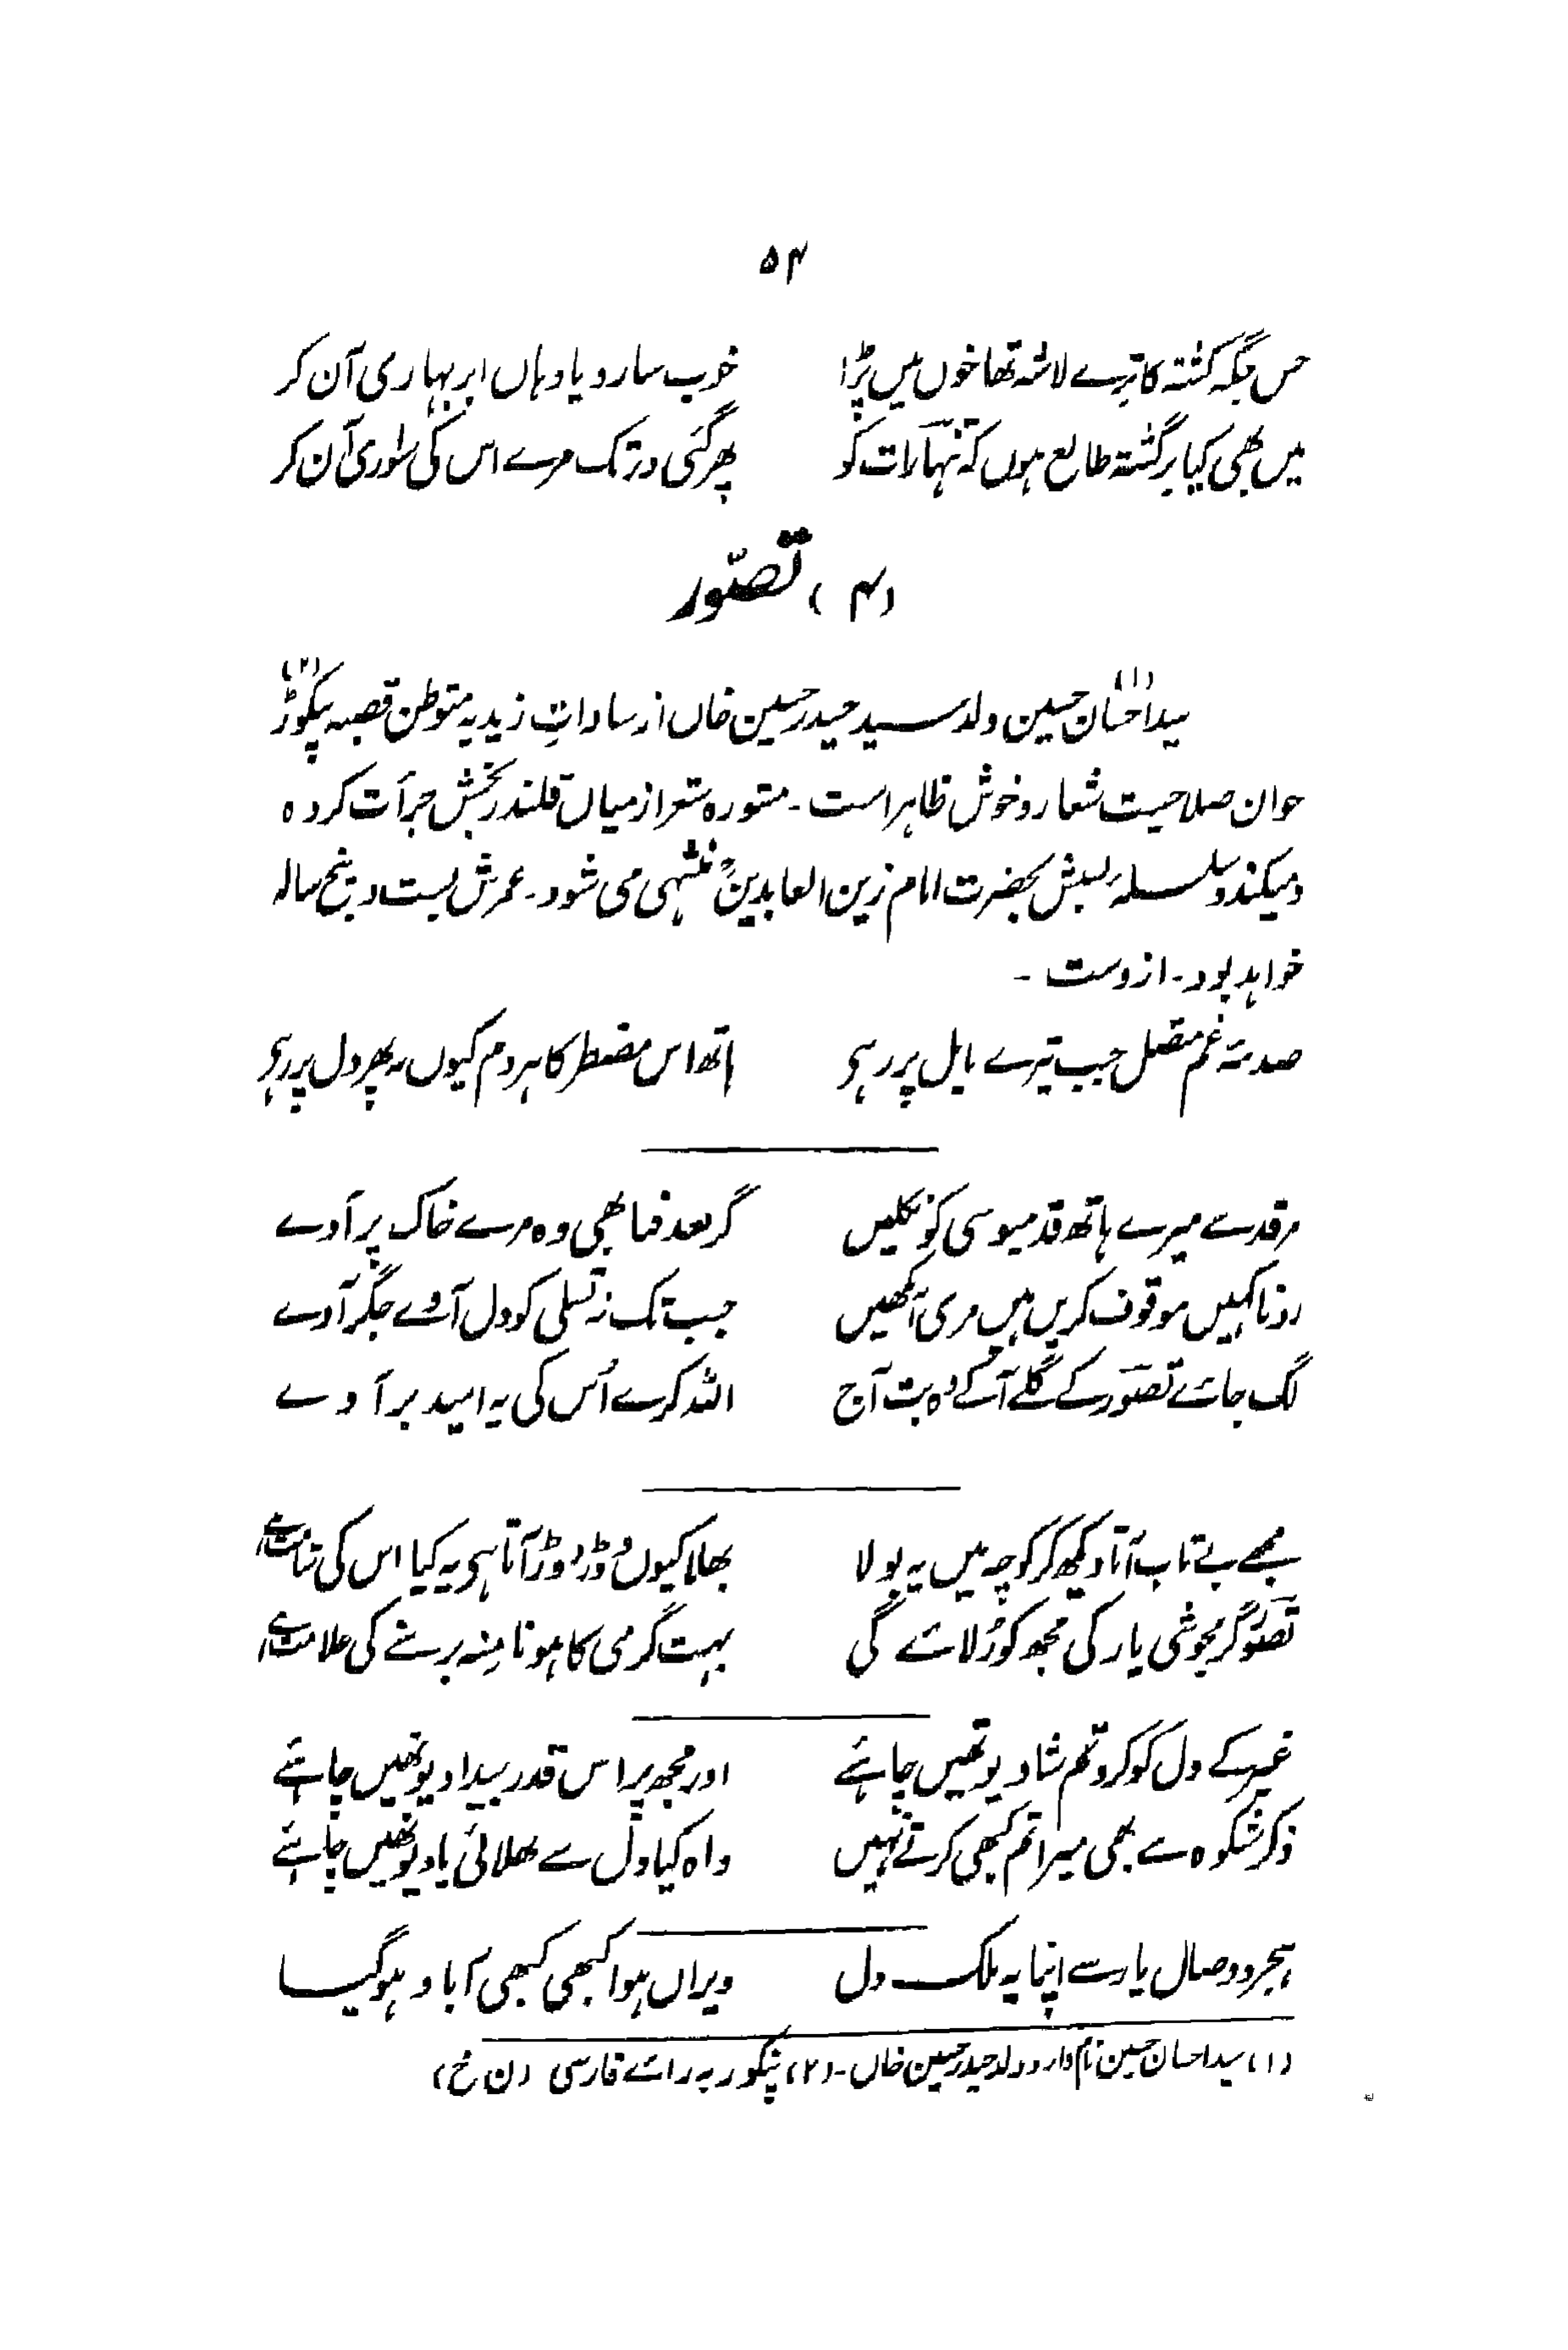 ۵۴
جس جگہ کشتہ کا ترے لاشہ تھا خوں میں پڑا خوب سا رویا وہاں ابر بہاری آن کر
میں بھی کیا برگشتہ طالع ہوں کہ تنہا رات کو پھر گئی در تک مرے اس کی سواری آن کر
(۴) تصوّر
سید احسان حسین(۱) ولد سید حیدر حسین خاں از ساداتِ زیدیہ متوطن قصبہ پنگوڑ(۲)
جوان صلاحیت شعار و خوش ظاہر است - مشورہ شعر از میاں قلندر بخش جرأت کردہ
و میکند و سلسلۂ نسبش بحضرت امام زین العابدینؑ منتہی می شود - عمرش بست و پنج سالہ
خواہد بود - ازوست -
صدمۂ غم متصل جب تیرے مایل پر رہی ہاتھ اس مضطر کا ہر دم کیوں نہ پھر دل پر رہی
مرقد سے میرے ہاتھ قدمبوسی کو نکلیں گر بعد فنا بھی وہ مرے خاک پر آوے
رونا کہیں موقوف کریں ہیں مری آنکھیں جب تک نہ تسلی کو دل آوے جگر آوے
لگ جائے تصوّر کے گلے آکے وہ بت آج اللہ کرے اُس کی یہ امید بر آوے
مجھے بے تاب آتا دیکھ کر کوچہ میں یہ بولا بھلا کیوں دوڑ دوڑ آتا ہی یہ کیا اس کی شامت ہے
تصوّر گرمجوشی یار کی مجھ کو رُلائے گی بہت گرمی کا ہونا مِنہ برسنے کی علامت ہے
غیر کے دل کو کرو تم شاد یونھیں چاہئے اور مجھ پر اس قدر بیداد یونھیں چاہئے
ذکر شکوہ سے بھی میرا تم کبھی کرتے نہیں واہ کیا دل سے بھلائی یاد یونھیں چاہئے
ہجر و وصال یار سے اپنا یہ ملک دل ویراں ہوا کبھی کبھی آباد ہو گیا
(۱) سید احسان حسین نام دارد ولد حیدر حسین خاں - (۲) پنگور بہ رائے فارسی (ن خ)